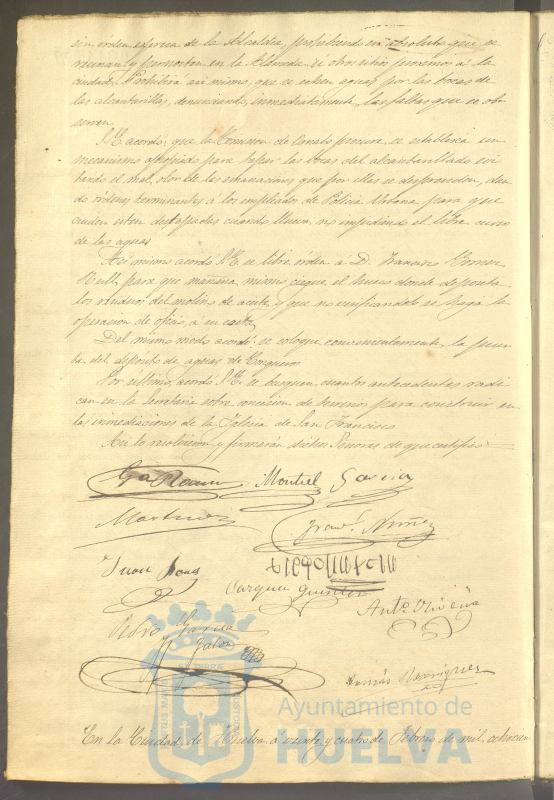 sin orden expresa de la Alcaldia, prohibiendo en absoluto que se
reunan y permanezcan en la Alameda u otros sitios proximos a la
ciudad. Prohibirá asi mismo, que se echen aguas por las bocas de
las alcantarillas, denunciando, inmediatamente, las faltas que se ob-
serven.
S.E. acordó: que la Comision de Ornato procure se establezca un
mecanismo apropiado para tapar las bocas del alcantarillado evi-
tando el mal olor de las emanaciones que por ellas se desprenden, dan-
do órdenes terminantes a los empleados de Policia Urbana para que
cuiden esten destapadas cuando llueva no impidiendo el libre curso
de las aguas
Asi mismo acordó S.E. se libre orden á D. Francisco Gomez
Rull, para que mañana mismo ciegue el hueco donde deposita
los residuos del molino de aceite, y que no verificandolo se haga la
operacion de oficio, á su costa
Del mismo modo acordó: se coloque convenientemente la puer-
ta del deposito de aguas de
Por último, acordó S.E. se busquen cuantos antecedentes radi-
can en la Secretaria sobre concesion de terrenos para construir en
las inmediaciones de la Iglesia de San Francisco
Asi lo resolvieron y firmarán dichos Señores de que certifico:
Montiel Garcia
Martinez
Franco. Nuñez
Juan
Vazquez Quintero
Anto. Oliveira
Pedro Garcia
Jalon
Tomás Rodriguez
Ayuntamiento de
HUELVA
En la Ciudad de Huelva a veinte y cuatro de Febrero de mil ochocien